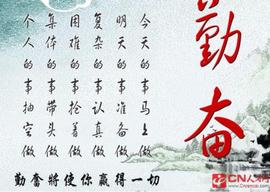 勤奋
今天的事马上做
明天的事准备做
复杂的事认真做
困难的事抢着做
集体的事带头做
个人的事抽空做
勤奮將使你贏得一切
CN人才网